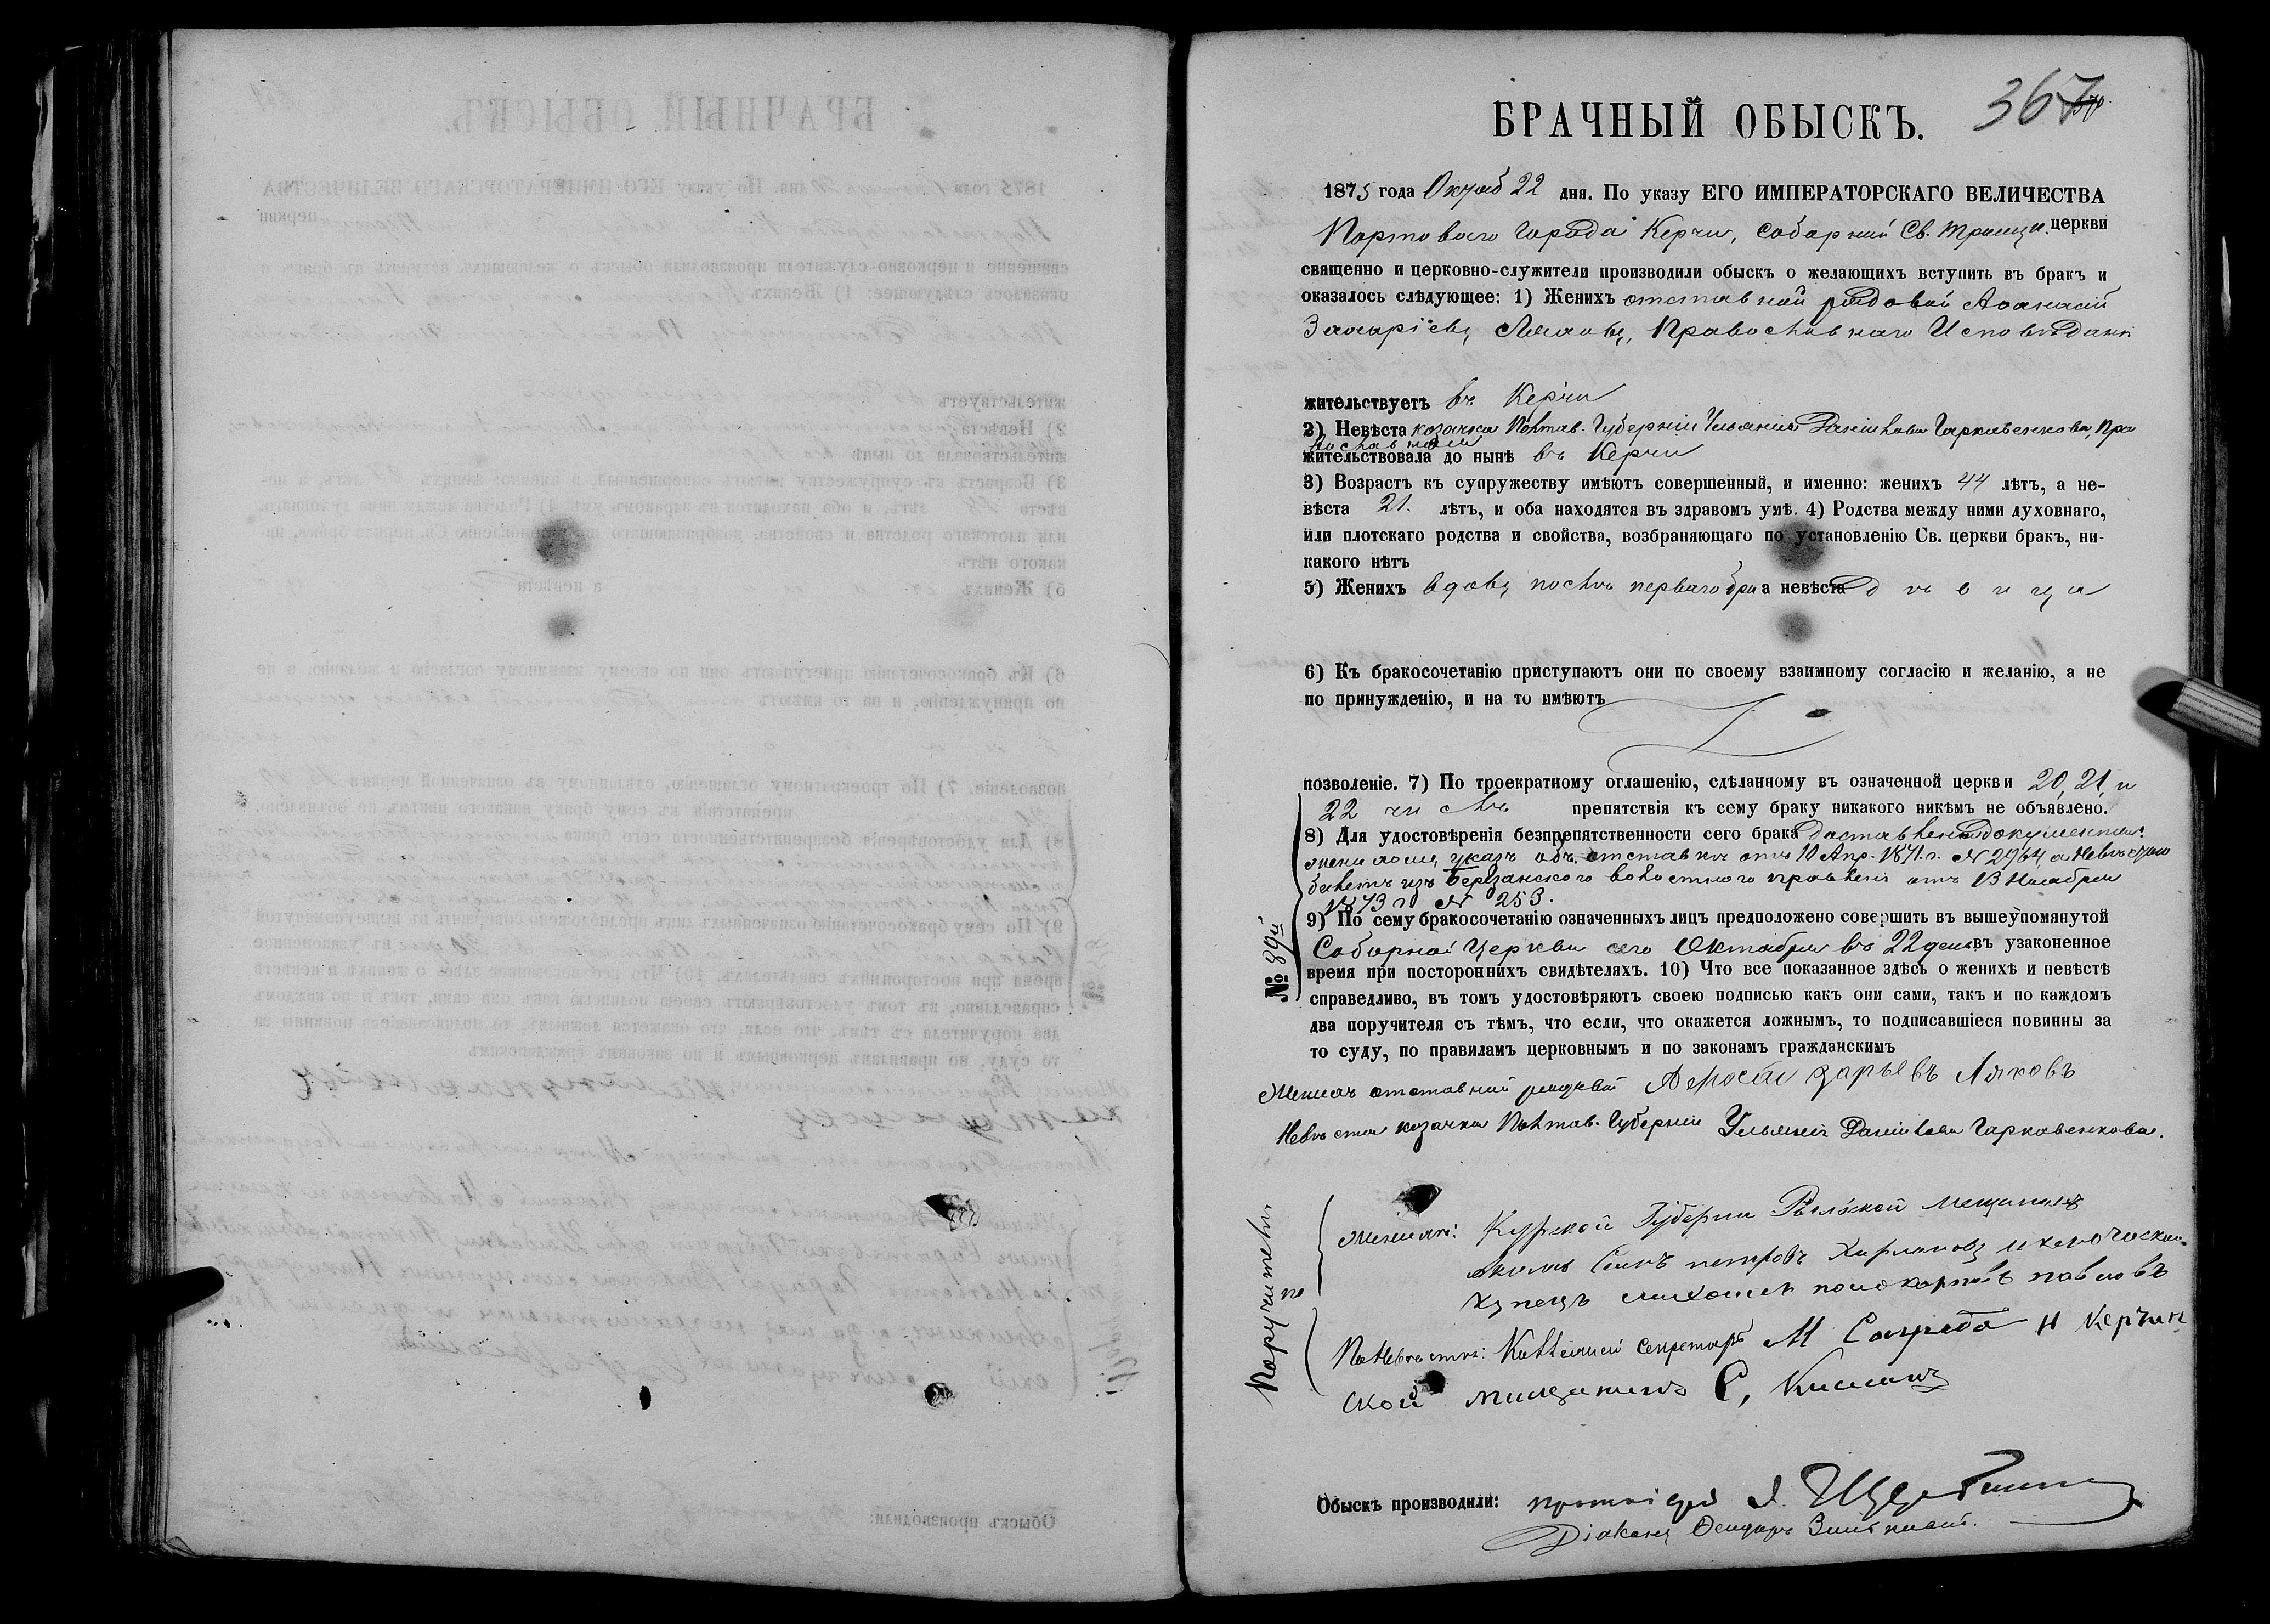 367
БРАЧНЫЙ ОБЫСКЪ.
1875 года Октяб 22 дня. По указу ЕГО ИМПЕРАТОРСКАГО ВЕЛИЧЕСТВА
Портоваго города Керчи, Соборной Св. Троицк. церкви
священно и церковно-служители производили обыскъ о желающихъ вступить въ бракъ и
оказалось слѣдующее: 1) Женихъ отставной рядовой Аѳанасій
Захаріевъ Ляховъ, Православнаго Исповѣданія
жительствуетъ въ Керчи
2) Невѣста козачка Полтав. Губерніи Ульянія Данілова Гаркавенкова, Пра
вославной
жительствовала до нынѣ въ Керчи
3) Возрастъ къ супружеству имѣютъ совершенный, и именно: женихъ 44 лѣтъ, а не-
вѣста 21. лѣтъ, и оба находятся въ здравомъ умѣ. 4) Родства между ними духовнаго,
или плотскаго родства и свойства, возбраняющаго по установленію Св. церкви бракъ, ни-
какого нѣтъ
5) Женихъ вдовъ послѣ перваго бра а невѣста дѣвица
6) Къ бракосочетанію приступаютъ они по своему взаимному согласію и желанію, а не
по принужденію, и на то имѣютъ
позволеніе. 7) По троекратному оглашенію, сдѣланному въ означенной церкви 20, 21, и
22 числъ препятствія къ сему браку никакого никѣмъ не объявлено.
8) Для удостовѣренія безпрепятственности сего брака доставлены документы:
женихомъ указъ объ отставкѣ отъ 10 Апр. 1871.г. № 2964, а Невѣстою
билетъ изъ Березанскаго волостнаго правленія отъ 13 Ноября
1873 г № 253.
9) По сему бракосочетанію означенныхъ лицъ предположено совершить въ вышеупомянутой
Соборной Церкви сего Октября въ 22 день въ узаконенное
№ 89й
время при постороннихъ свидѣтеляхъ. 10) Что все показанное здѣсь о женихѣ и невѣстѣ
справедливо, въ томъ удостовѣряютъ своею подписью какъ они сами, такъ и по каждомъ
два поручителя съ тѣмъ, что если, что окажется ложнымъ, то подписавшіеся повинны за
то суду, по правиламъ церковнымъ и по законамъ гражданскимъ
Женихъ отставной рядовой зарьевъ Ляховъ
Невѣста козачка Полтав. Губерніи Ульянія Данілова Гаркавенкова.
Поручители
по
женихѣ: Курской Губерни Рыльской мещининъ
Сынъ петровъ
купецъ павловъ
По Невѣстѣ: Коллежскій Секретарь М и Керчен
ской мищининъ С,
Обыскъ производили: протоіерей
Діаконъ